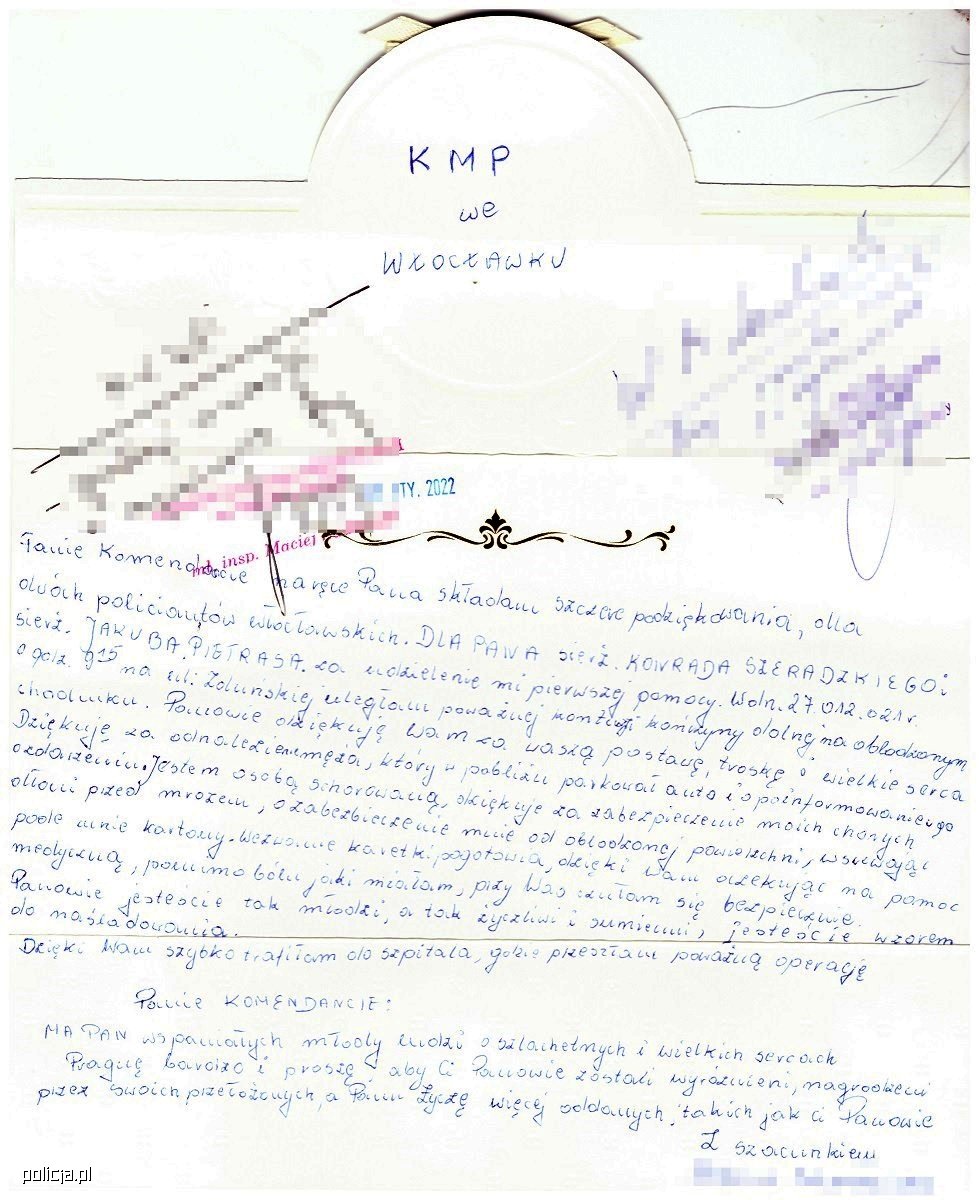 KMP
we
WŁOCŁAWKU
TY. 2022
insp. Maciej
Panie Komendancie na ręce Pana składam szczere podziękowania, dla
dwóch policjantów włocławskich. DLA PANA sierż. KONRADA SZERADZKIEGO i
sierż. JAKUBA. PIETRASA. za udzielenie mi pierwszej pomocy. W dn. 27.012.021r.
o godz. 9 15 na ul. Żduńskiej uległam poważnej kontuzji kończyny dolnej na oblodzonym
chodniku. Panowie dziękuję Wam za waszą postawę, troskę i wielkie serca
Dziękuję za odnalezienie męża, który w pobliżu parkował auto i o poinformowanie go
o zdarzeniu. Jestem osobą schorowaną, dziękuję za zabezpieczenie moich chorych
dłoni przed mrozem, o zabezbieczenie mnie od oblodzonej powierzchni, wsuwając
pode mnie kartony. Wezwanie karetki pogotowia, dzięki Wam oczekując na pomoc
medyczną, pomimo bólu jaki miałam, przy Was czułam się bezpiecznie.
Panowie jesteście tak młodzi, a tak życzliwi i sumienni, jesteście wzorem
do naśladowania.
Dzięki Wam szybko trafiłam do szpitala, gdzie przeszłam poważną operację
Panie KOMENDANCIE:
MA PAN wspaniałych młody ludzi o szlachetnych i wielkich sercach
Pragnę bardzo i proszę, aby Ci Panowie zostali wyróżnieni, nagrodzeni
przez swoich przełożonych, a Panu Życzę więcej oddanych, takich jak ci Panowie
Z szacunkiem
policja.pl